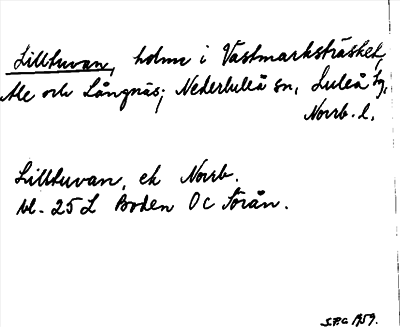 Lilltuvan, holme i Västmarksträsket,
Ale och Långnäs; Nederluleå sn, Luleå tg,
Norrb. l.
Lilltuvan, ek Norrb.
bl. 25 L Boden OC Torån.
S.P.G 1959.